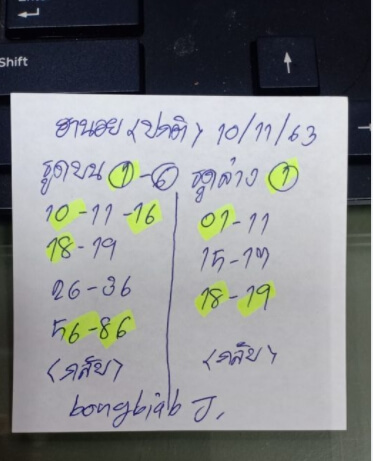 Shift
ฮานอย <ปกติ> 10/11/63
รูดบน 1-6
10-11-16
18-19
26-36
56-86
<กลับ>
รูดล่าง 1
01-11
15-17
18-19
<กลับ>
bongbiab J.